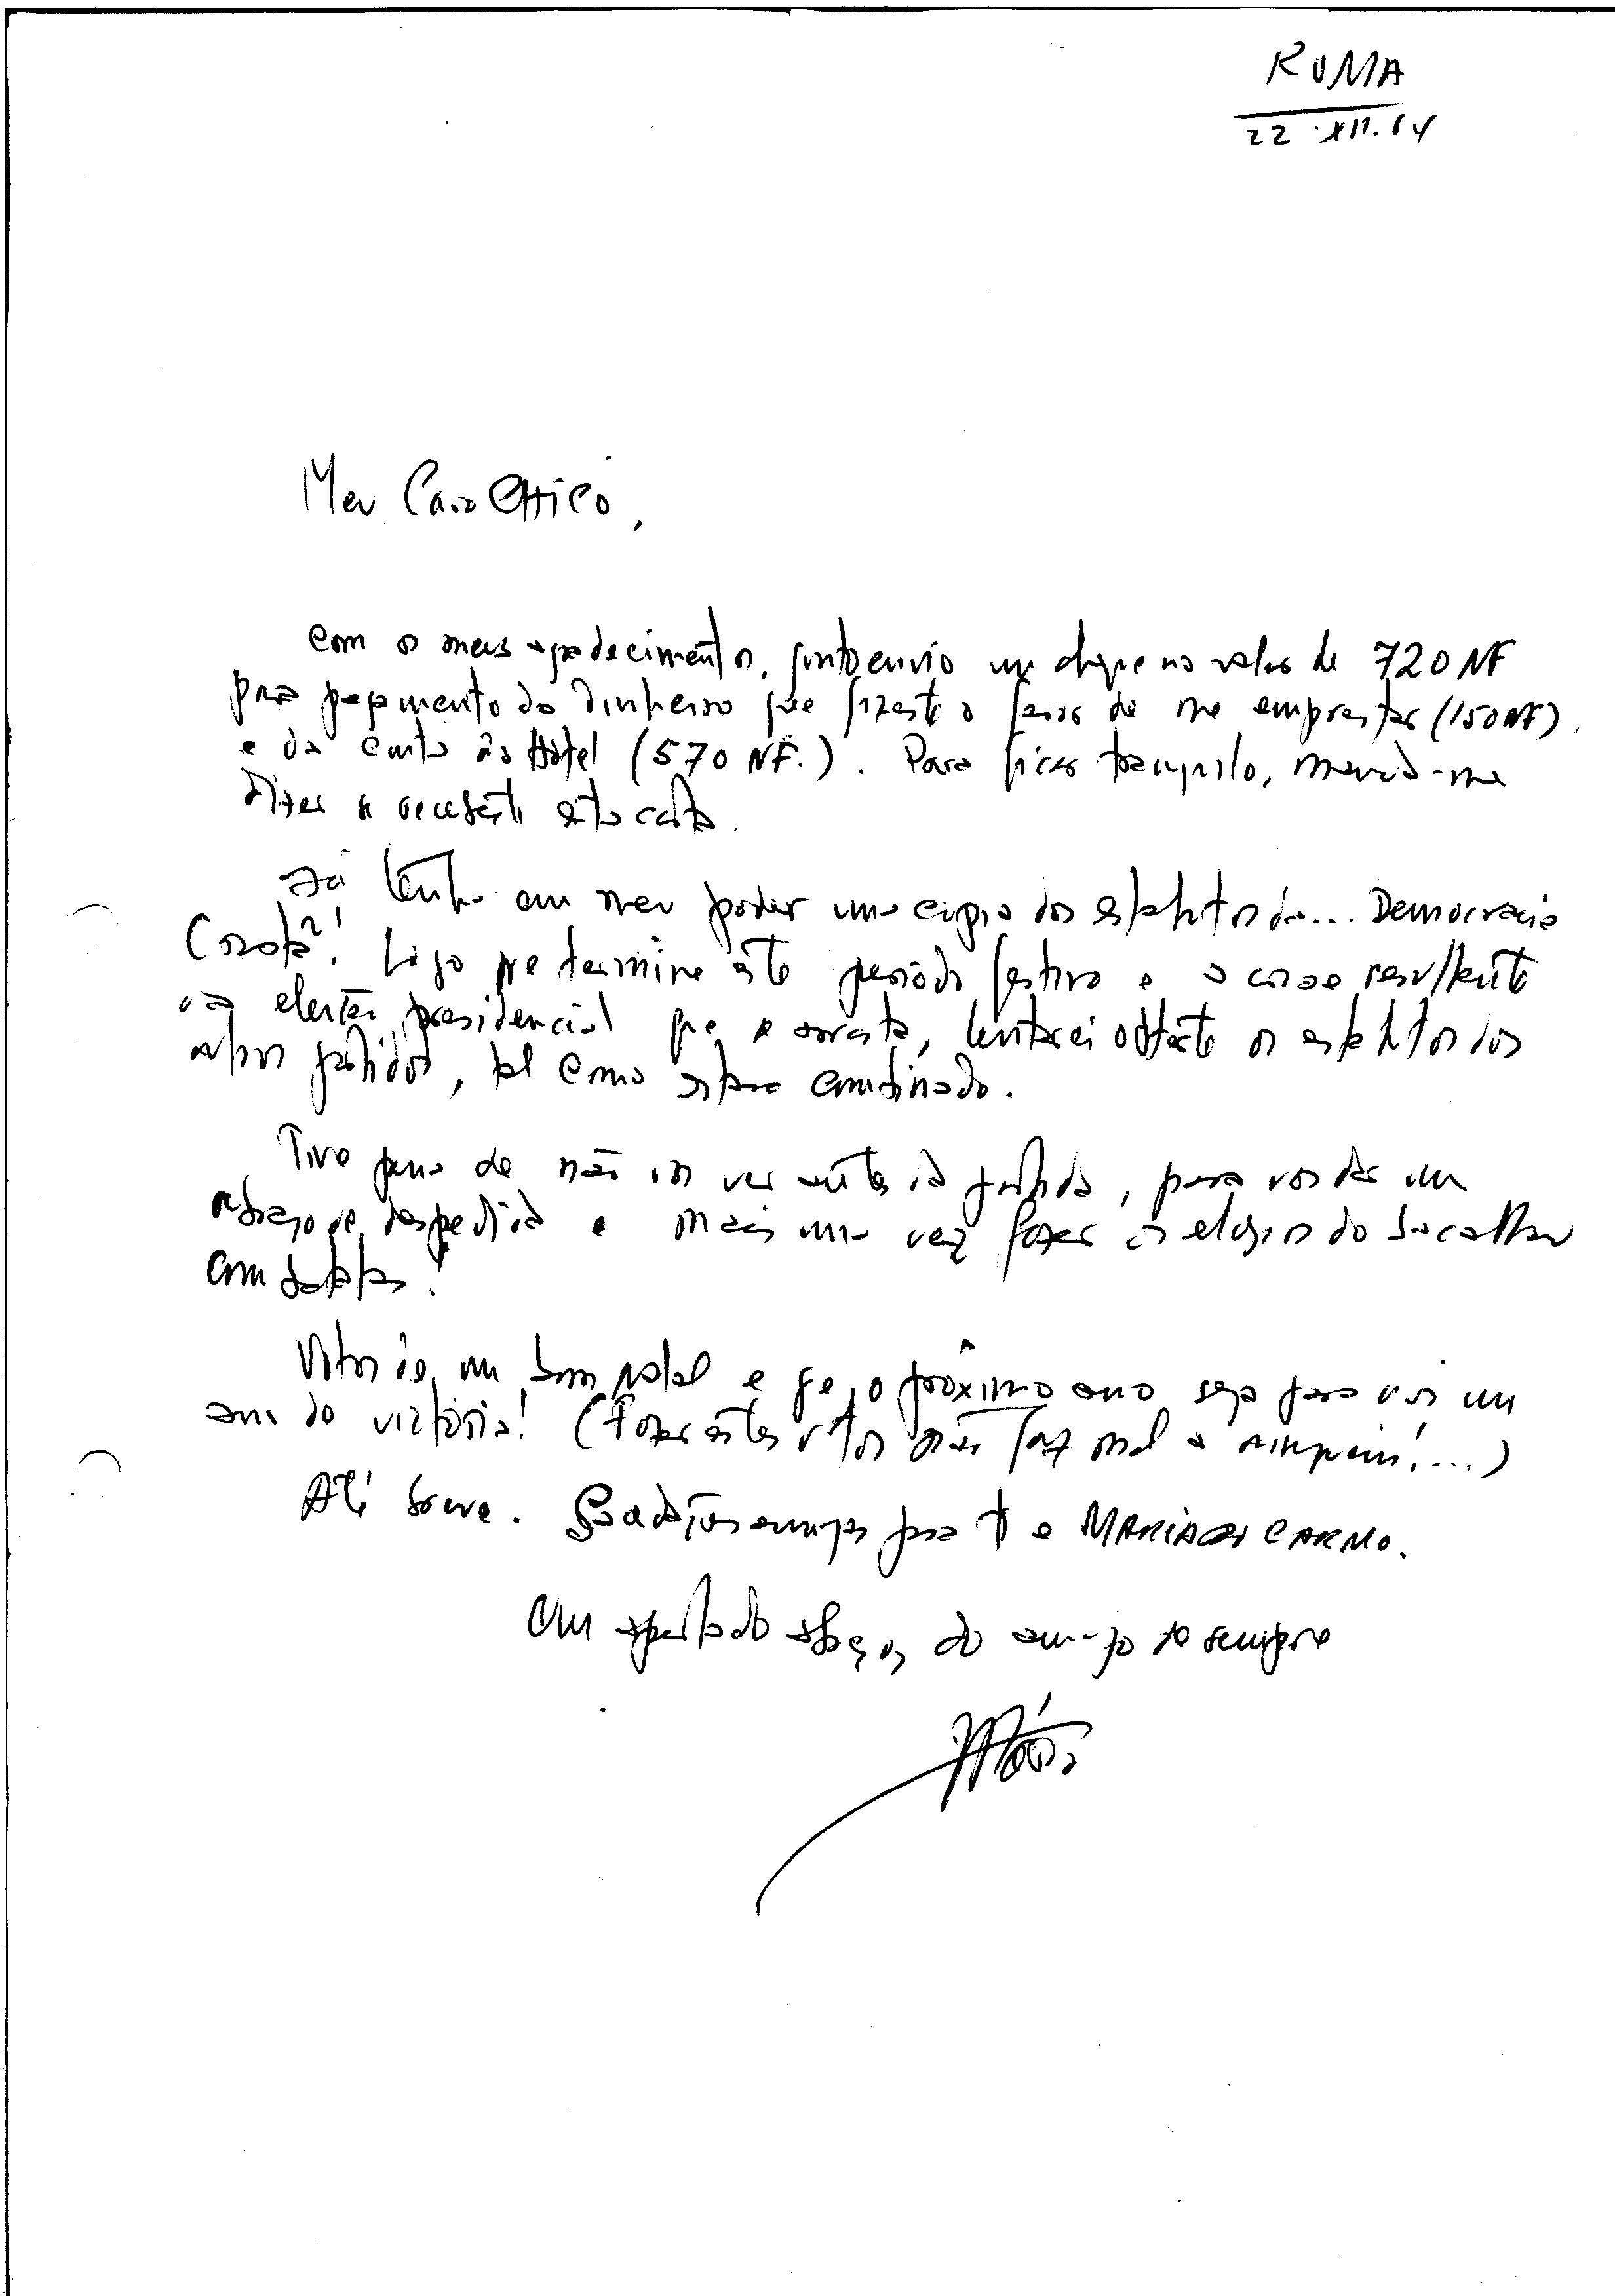 ROMA
22.XII.64
Meu Caro Chico,
com os meus agradecimentos, junto envio um cheque no valor de 720 NF
para pagamento do dinheiro que fizeste o favor de me emprestar (150 NF)
e da conta do Hotel (570 NF.). Para ficar tranquilo, manda-me
dizer se recebeste esta carta.
Já tenho em meu poder uma cópia dos estatutos da... Democracia
Cristã! Logo que termine este período festivo e a crise resultante
da eleição presidencial que se arrasta, tentarei obter-te os estatutos dos
outros partidos, tal como estava combinado.
Tive pena de não vos ver antes da partida, para vos dar um
abraço de despedida e mais uma vez fazer os elogios do bacalhau
com batatas!
Votos de um bom Natal e que o próximo ano seja para vós um
ano de victória! (Fazer estes votos não faz mal a ninguém!...)
Até breve. Saudações amigas para ti e MARIA DO CARMO.
Um apertado abraço, do amigo de sempre
Mário